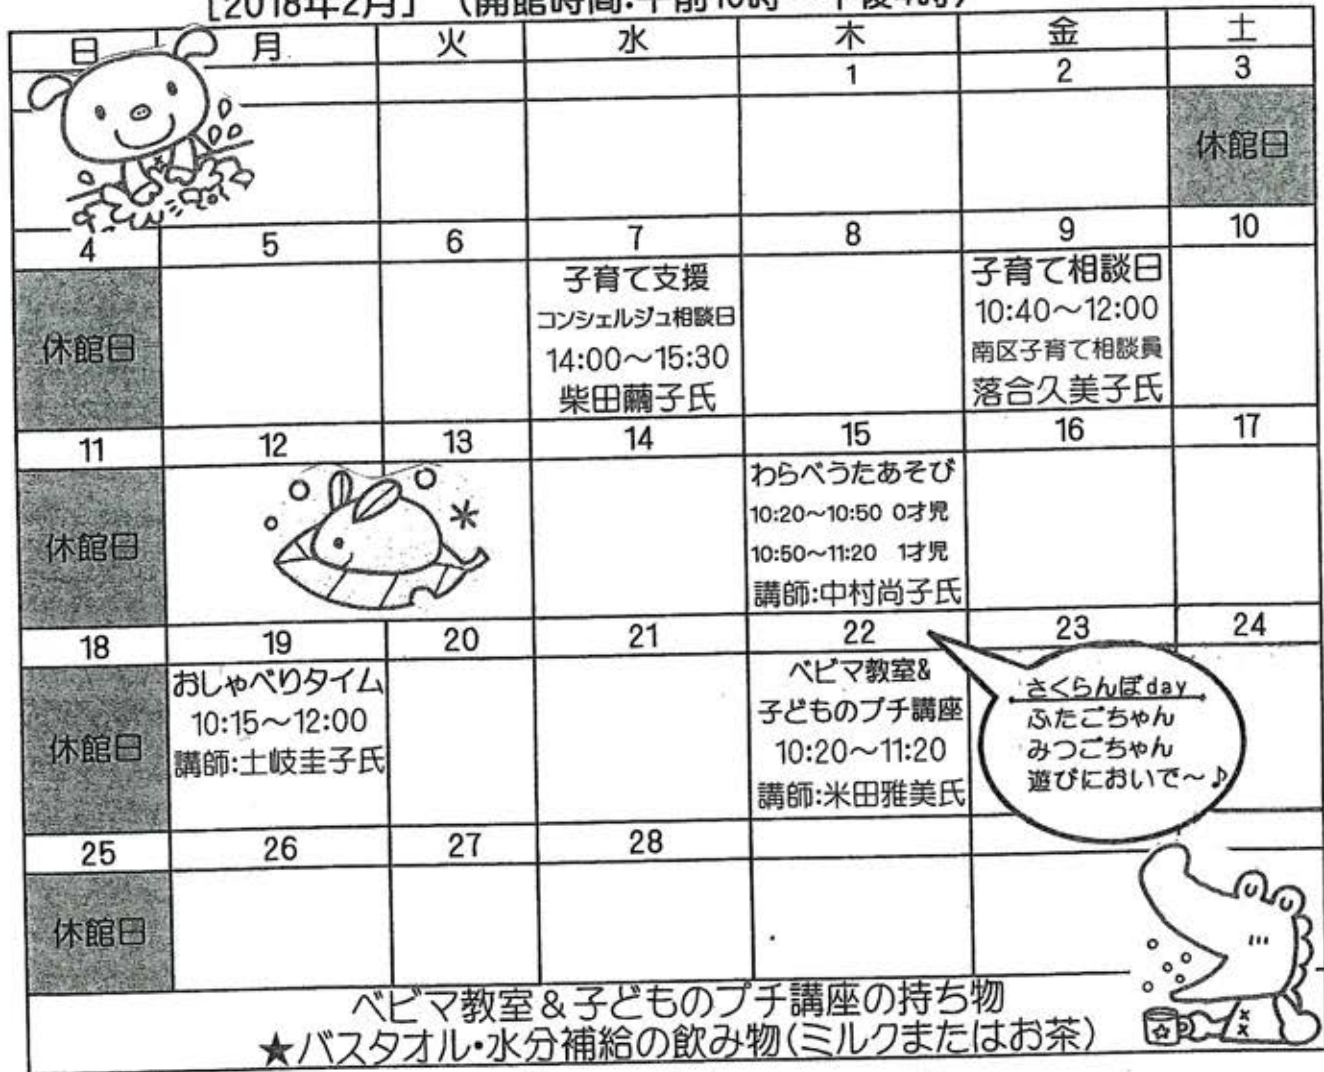 [2018年2月] (開館時間:午前10時～午後4時)
日 月 火 水 木 金 土
1 2 3
休館日
4 5 6 7 8 9 10
休館日
子育て支援
コンシェルジュ相談日
14:00～15:30
柴田繭子氏
子育て相談日
10:40～12:00
南区子育て相談員
落合久美子氏
11 12 13 14 15 16 17
休館日
わらべうたあそび
10:20～10:50 0才児
10:50～11:20 1才児
講師:中村尚子氏
18 19 20 21 22 23 24
休館日
おしゃべりタイム
10:15～12:00
講師:土岐圭子氏
ベビマ教室&
子どものプチ講座
10:20～11:20
講師:米田雅美氏
さくらんぼday
ふたごちゃん
みつごちゃん
遊びにおいで～♪
25 26 27 28
休館日
ベビマ教室&子どものプチ講座の持ち物
★バスタオル・水分補給の飲み物(ミルクまたはお茶)